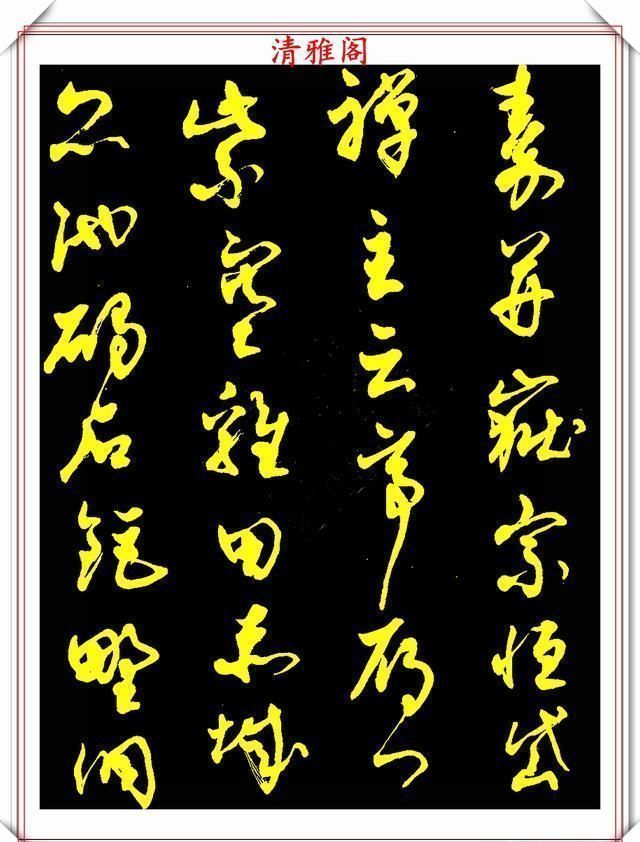 清雅阁
秦并嶽宗恒岱
禪主云亭雁門
紫塞雞田赤城
昆池碣石鉅野洞